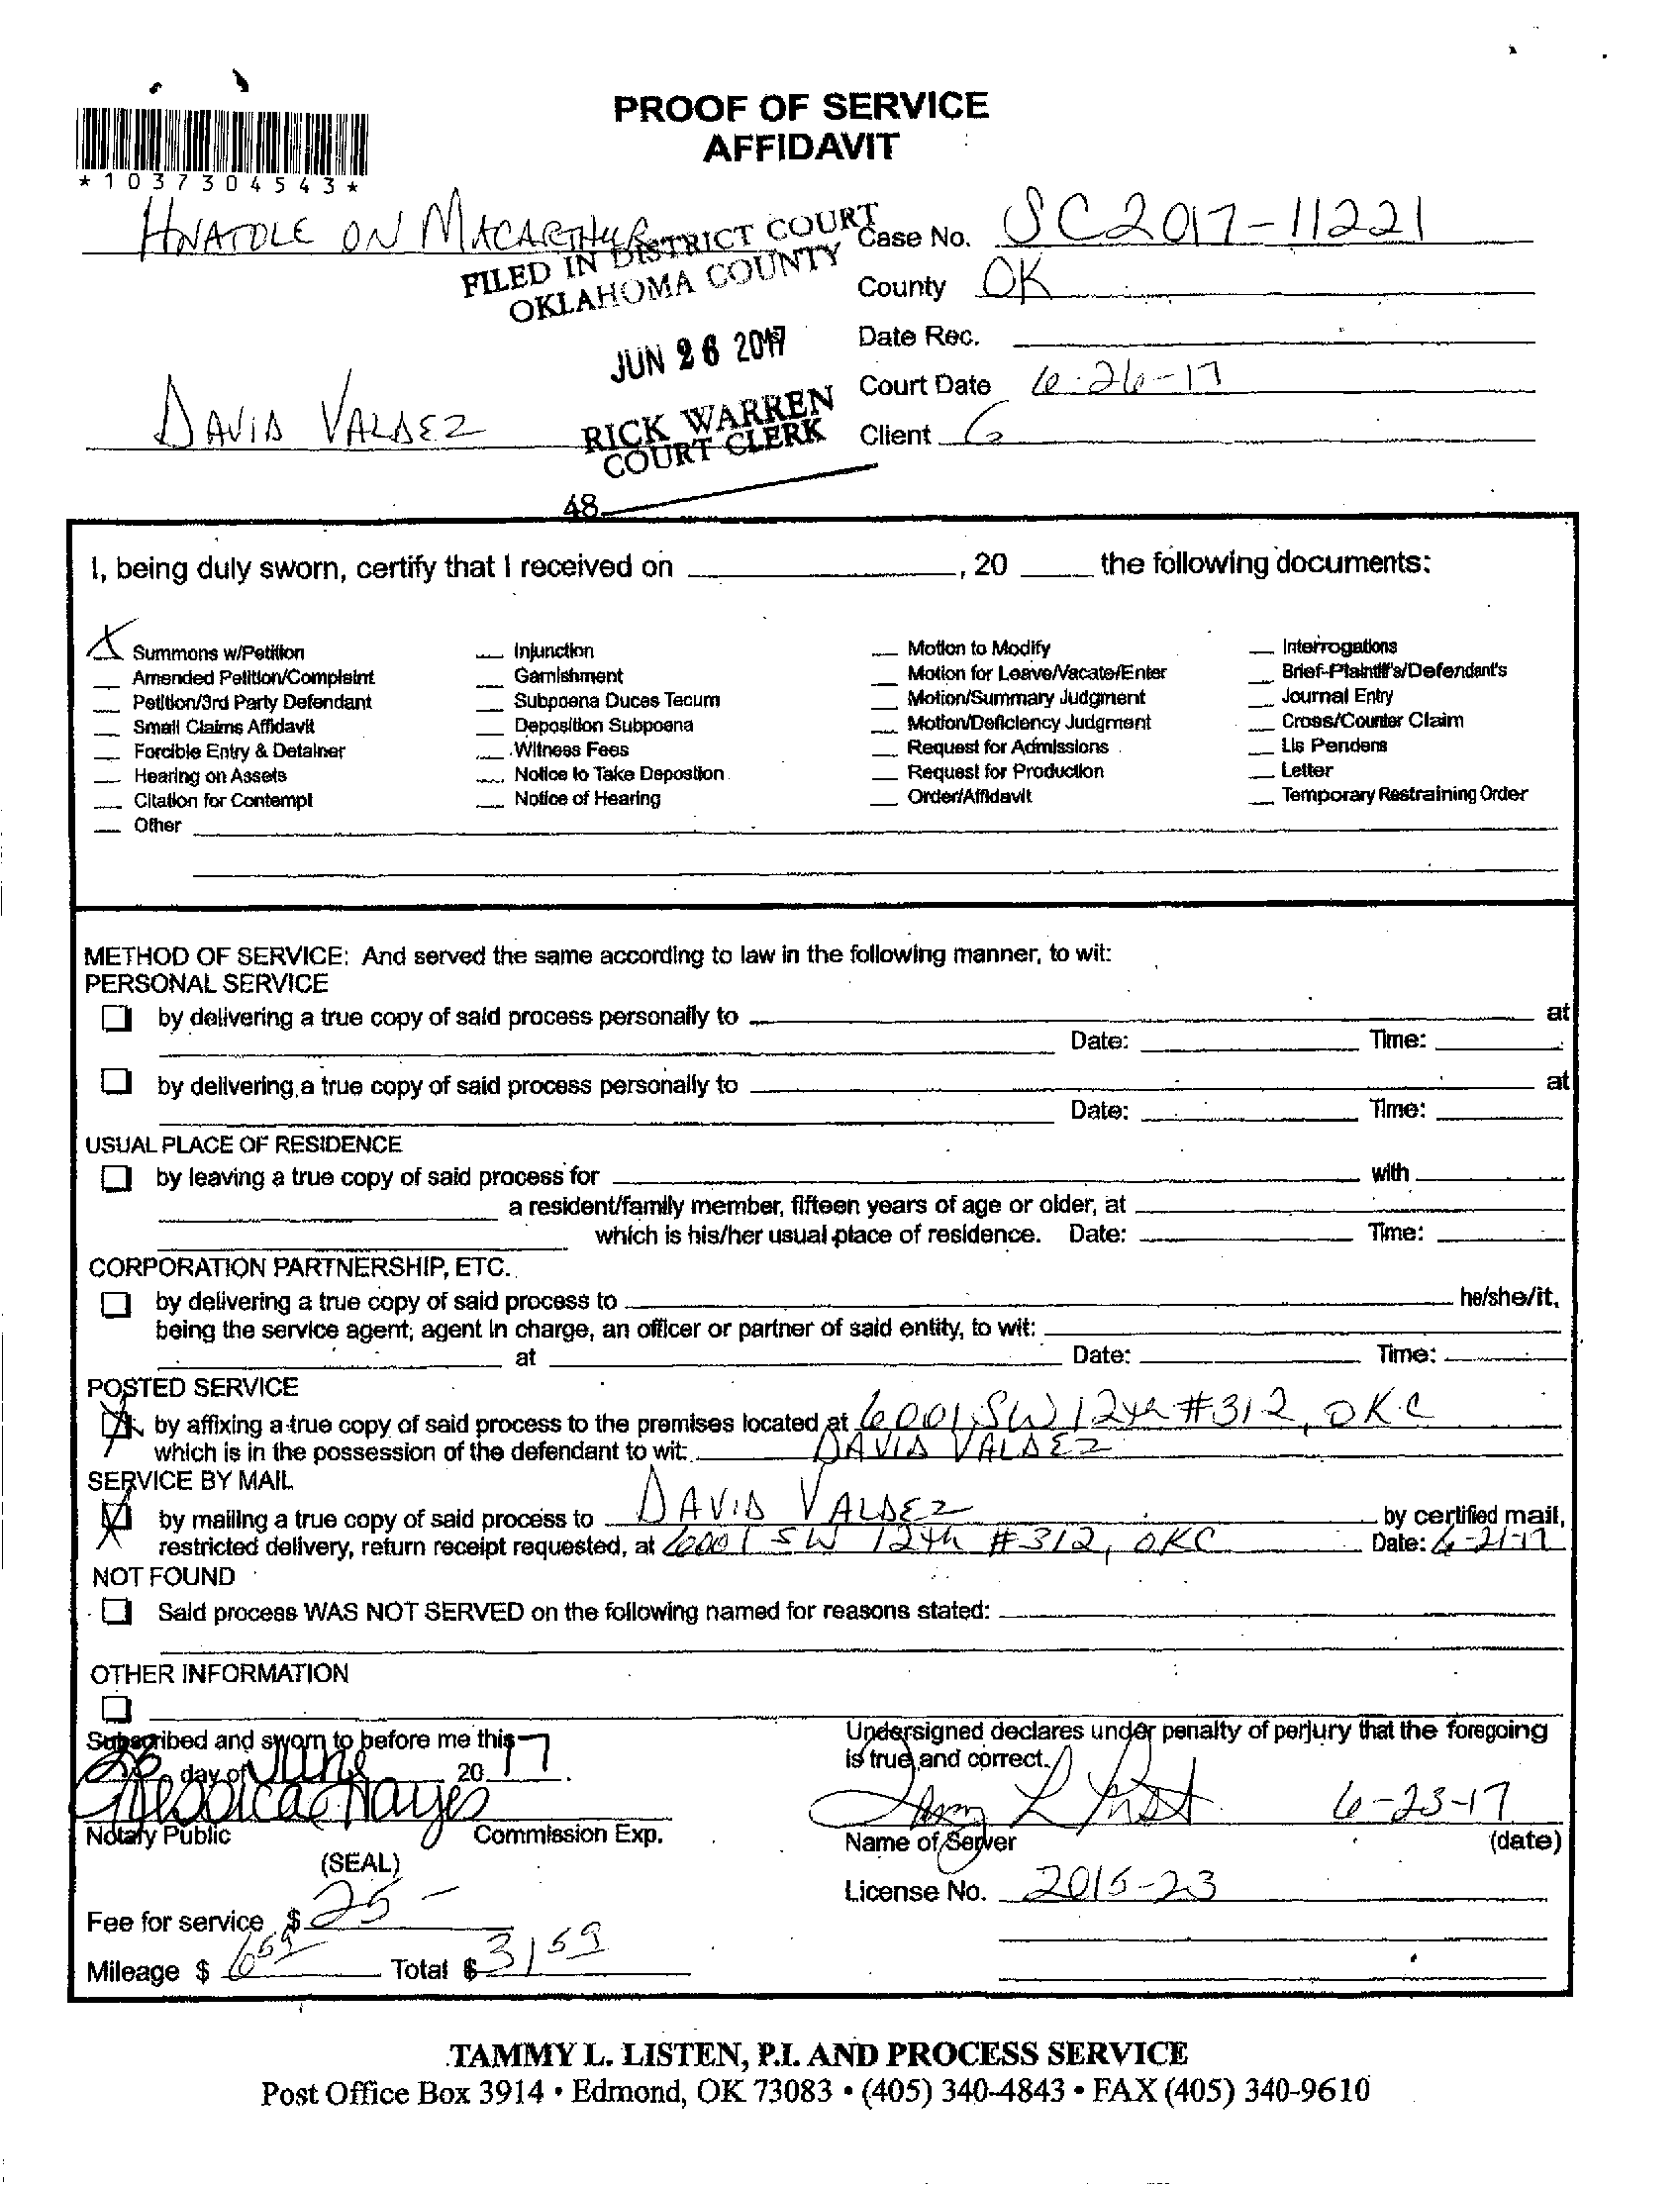 PROOF OF SERVICE
AFFIDAVIT
*1037304543*
HNATOLE ON MACARTHUR
FILED IN DISTRICT COURT
OKLAHOMA COUNTY
JUN 26 2017
RICK WARREN
COURT CLERK
48
Case No. SC2017-11221
County OK
Date Rec.
Court Date 6-26-17
Client G
DAVID VALDEZ
I, being duly sworn, certify that I received on , 20 the following documents:
X Summons w/Petition
Amended Petition/Complaint
Petition/3rd Party Defendant
Small Claims Affidavit
Forcible Entry & Detainer
Hearing on Assets
Citation for Contempt
Other
Injunction
Garnishment
Subpoena Duces Tecum
Deposition Subpoena
Witness Fees
Notice to Take Depostion
Notice of Hearing
Motion to Modify
Motion for Leave/Vacate/Enter
Motion/Summary Judgment
Motion/Deficiency Judgment
Request for Admissions
Request for Production
Order/Affidavit
Interrogations
Brief-Plaintiff's/Defendant's
Journal Entry
Cross/Counter Claim
Lis Pendens
Letter
Temporary Restraining Order
METHOD OF SERVICE: And served the same according to law in the following manner, to wit:
PERSONAL SERVICE
by delivering a true copy of said process personally to at
Date: Time:
by delivering a true copy of said process personally to at
Date: Time:
USUAL PLACE OF RESIDENCE
by leaving a true copy of said process for with
a resident/family member, fifteen years of age or older, at
which is his/her usual place of residence. Date: Time:
CORPORATION PARTNERSHIP, ETC.
by delivering a true copy of said process to he/she/it,
being the service agent, agent in charge, an officer or partner of said entity, to wit:
at Date: Time:
POSTED SERVICE
X by affixing a true copy of said process to the premises located at 6001 SW 12th #312, OKC
which is in the possession of the defendant to wit: DAVID VALDEZ
SERVICE BY MAIL
X by mailing a true copy of said process to DAVID VALDEZ by certified mail,
restricted delivery, return receipt requested, at 6001 SW 12th #312, OKC Date: 6-21-17
NOT FOUND
Said process WAS NOT SERVED on the following named for reasons stated:
OTHER INFORMATION
Subscribed and sworn to before me this
26 day of June 20 17
Notary Public Commission Exp.
(SEAL)
Fee for service $ 25 -
Mileage $ 6 59 Total $ 31 59
Undersigned declares under penalty of perjury that the foregoing
is true and correct.
6-23-17
Name of Server (date)
License No. 2015-23
TAMMY L. LISTEN, P.I. AND PROCESS SERVICE
Post Office Box 3914 • Edmond, OK 73083 • (405) 340-4843 • FAX (405) 340-9610